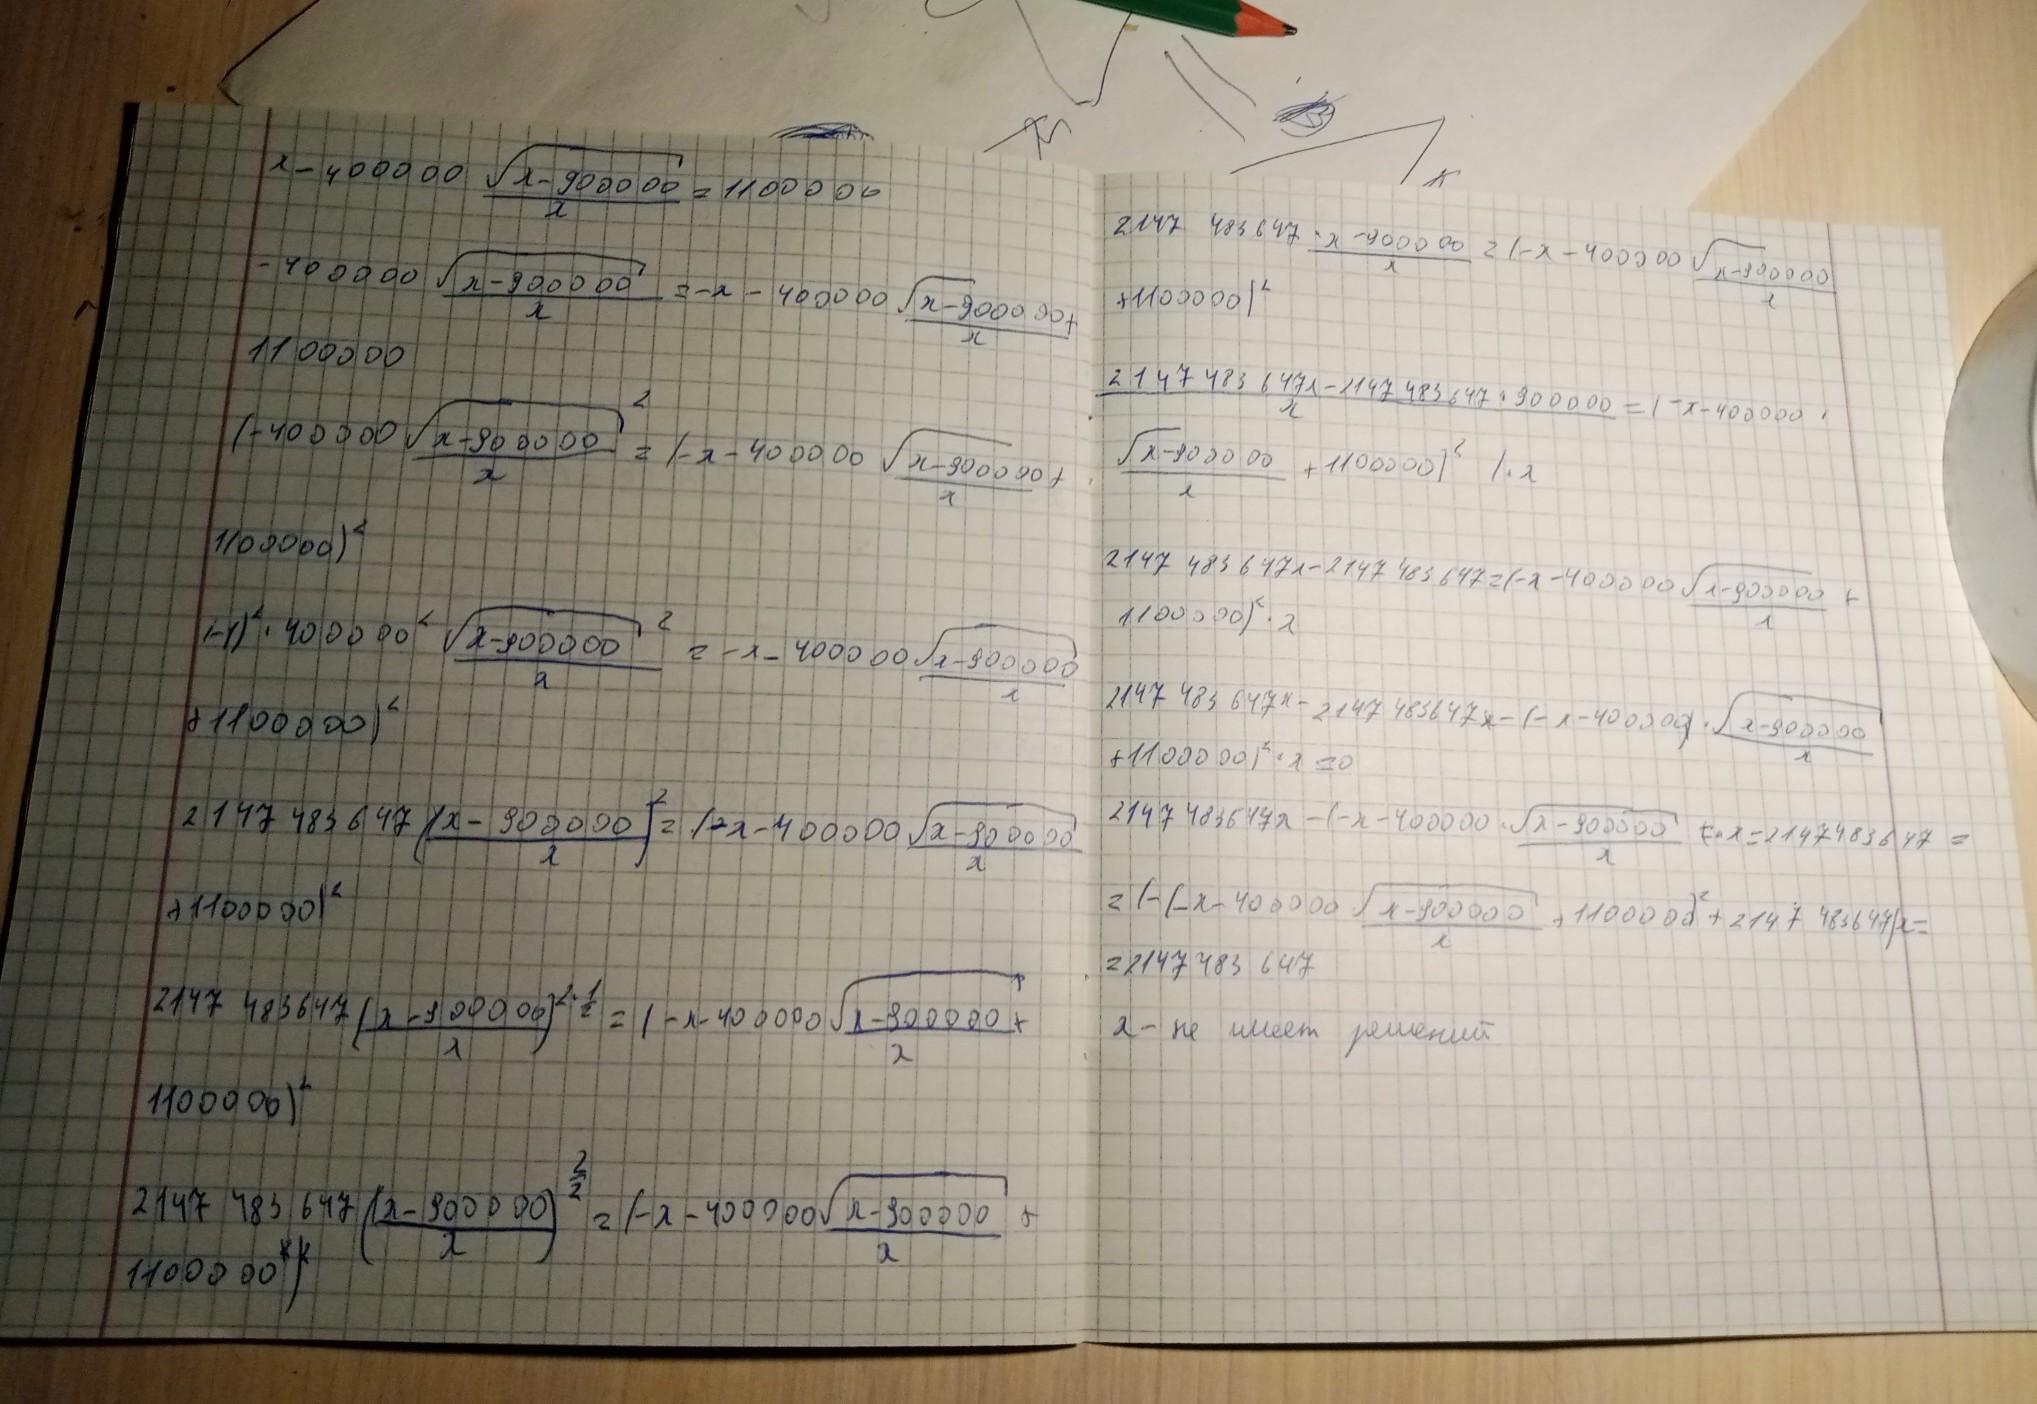 x-400000 √x-900000/x = 1100000
-400000 √x-900000/x = -x - 400000 √x-900000/x +
1100000
(-400000 √x-900000/x ² = (-x-400000 √x-900000/x +
1100000)²
(-1)²·400000² √x-900000/x ² = -x-400000 √x-900000/x
+1100000)²
2147 483647 (x-900000/x)² = (-x-400000 √x-900000/x
+1100000)²
2147 483647 (x-900000/x)^2·1/2 = (-x-400000 √x-900000/x +
1100000)²
2147 483 647 (x-900000/x)^2/2 = (-x-400000 √x-900000/x +
1100000)
2147 483647·x-900000/x = (-x-400000 √x-900000/x
+1100000)²
2147483647x-2147483647·900000/x = (-x-400000·
√x-900000/x +1100000)² /·x
2147 483647x-2147483647=(-x-400000 √x-900000/x +
1100000)²·x
2147 483 647x-2147483647x-(-x-400000)·√x-900000/x
+1100000)²·x=0
2147483647x-(-x-400000·√x-900000/x ·x=2147483647 =
=(-(-x-400000 √x-900000/x +1100000)²+2147 483647)x=
=2147483 647
x- не имеет решений